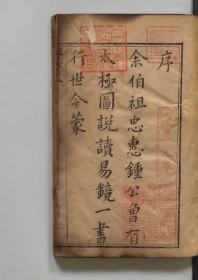 序
余伯祖忠惠鍾公曾有
太極圖說讀易鏡一書
行世今蒙